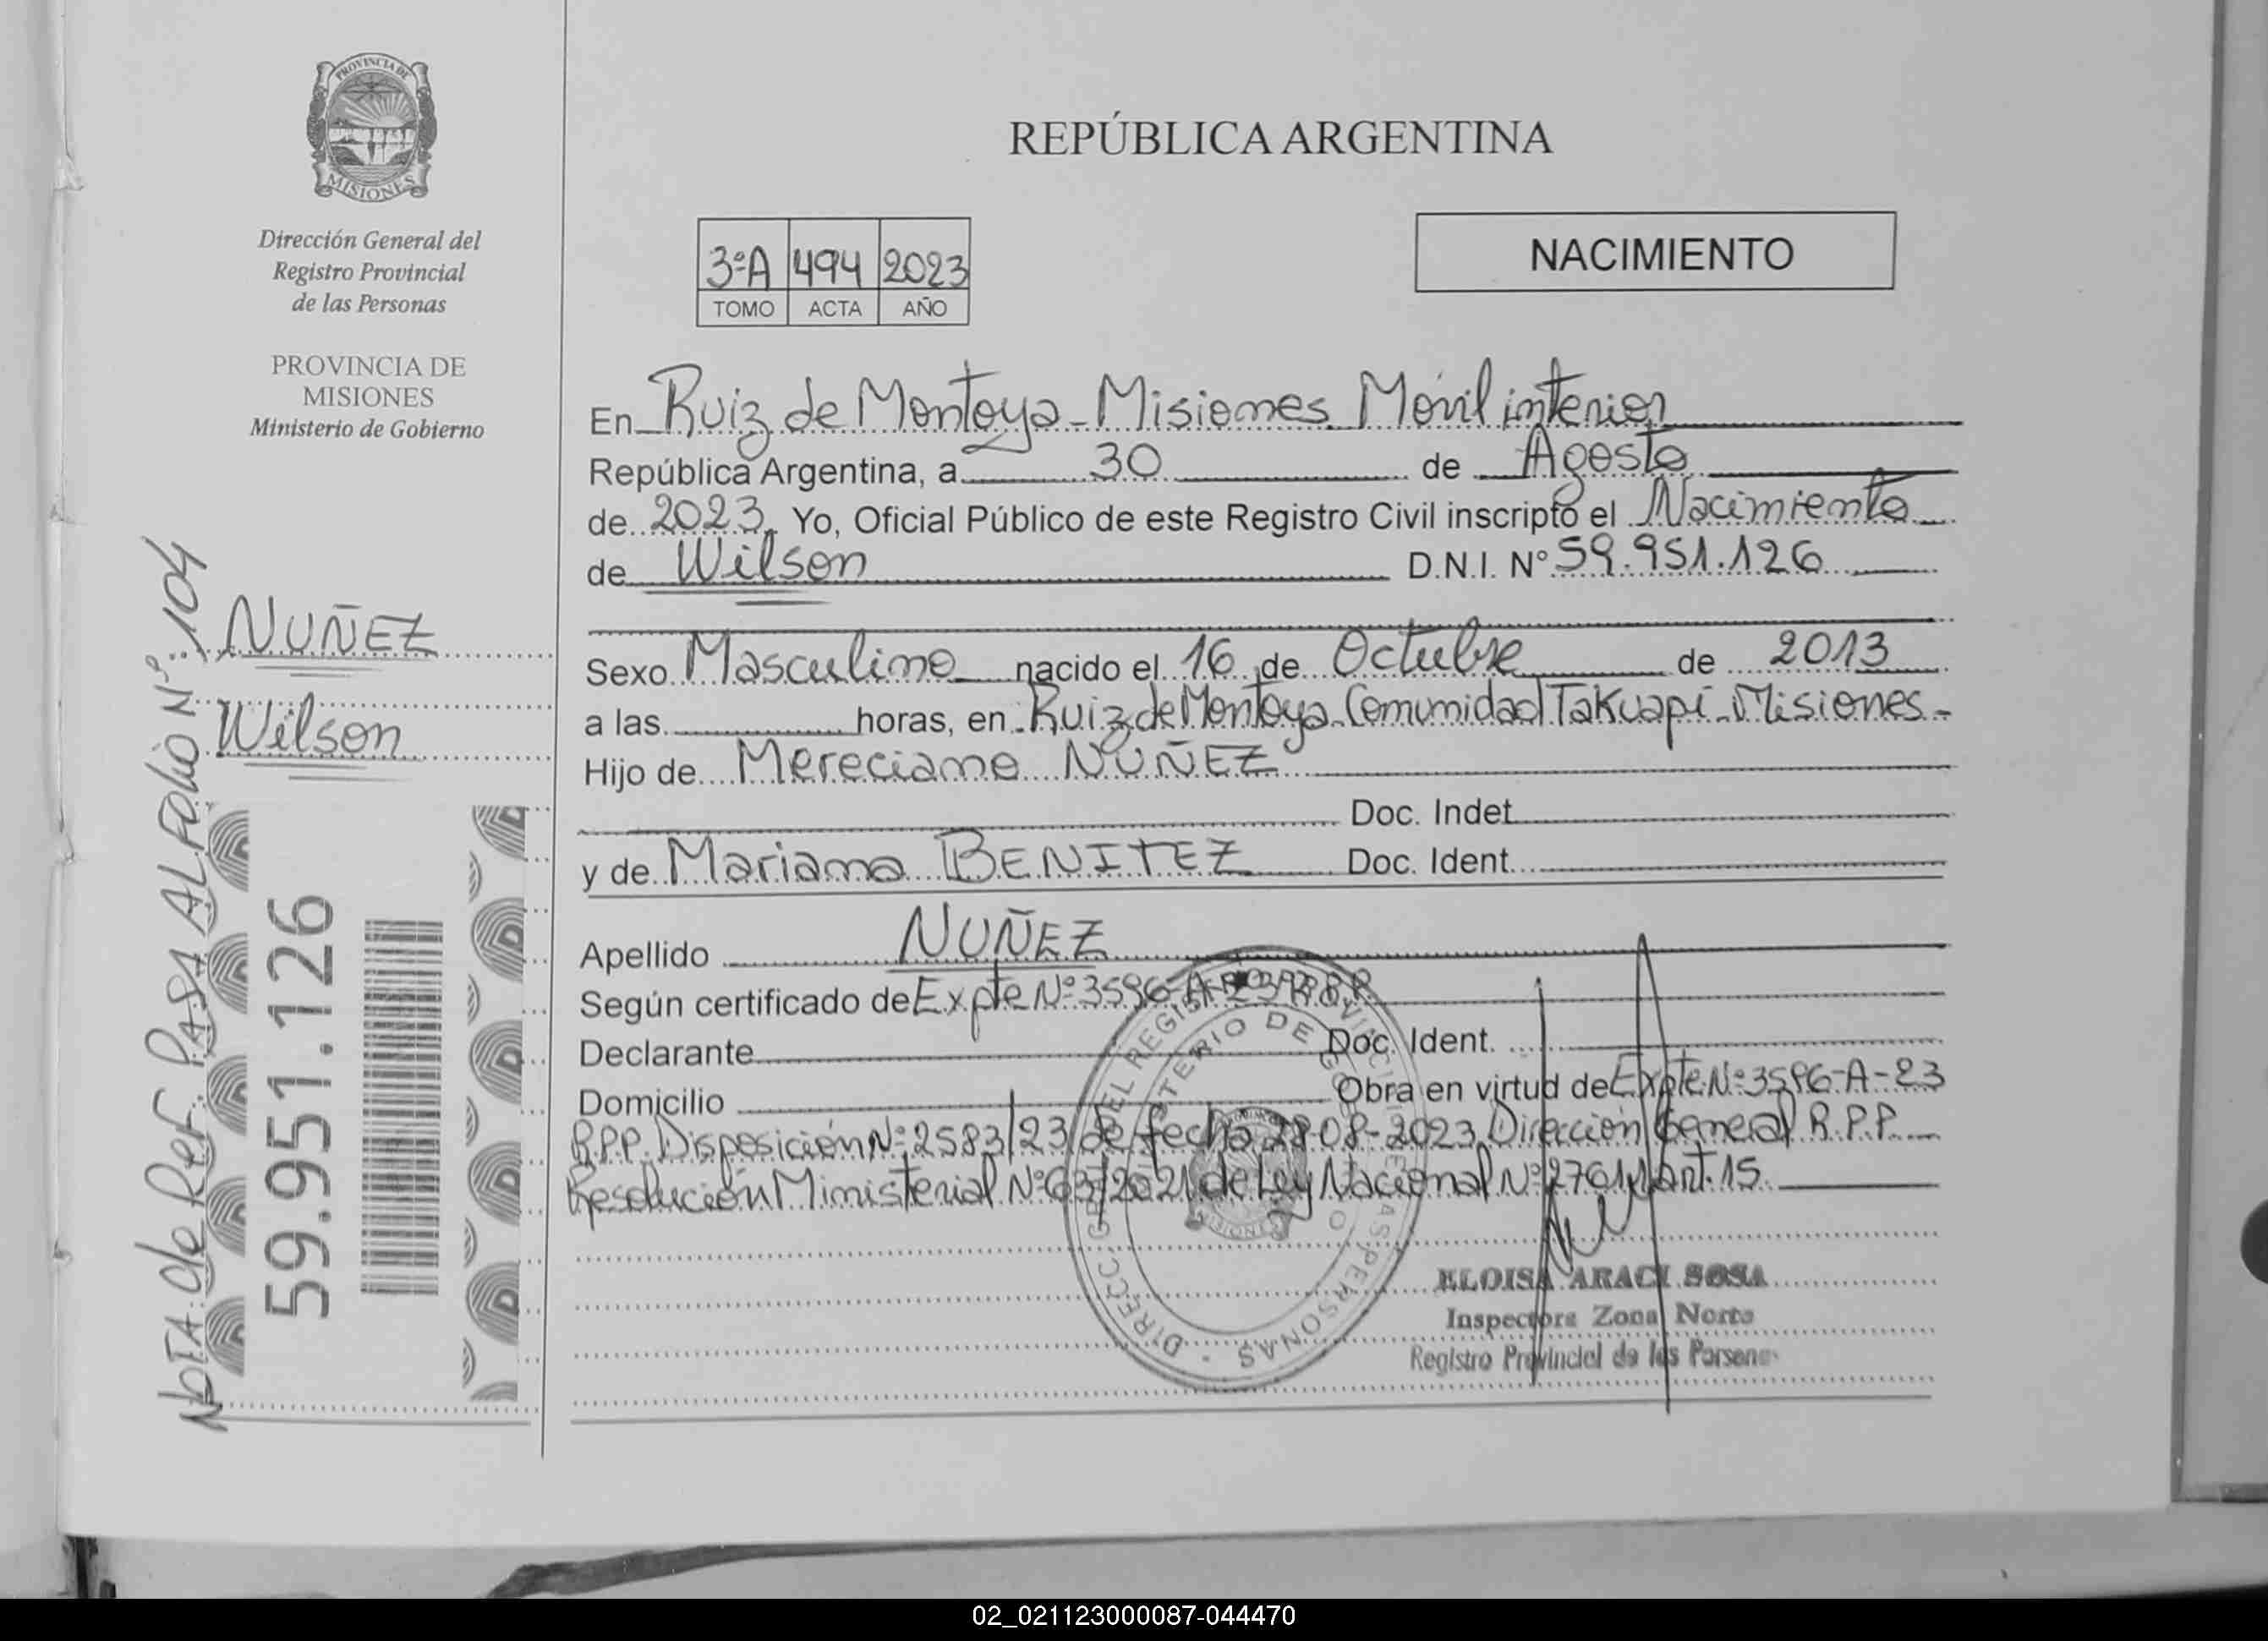 PROVINCIA DE
MISIONES
Dirección General del
Registro Provincial
de las Personas
PROVINCIA DE
MISIONES
Ministerio de Gobierno
NUÑEZ
Wilson
NOTA de Ref. PASA AL FOLIO Nº: 104
59.951.126
REPÚBLICA ARGENTINA
3ºA 494 2023
TOMO ACTA AÑO
NACIMIENTO
En Ruiz de Montoya - Misiones. Móvil interior
República Argentina, a 30 de Agosto
de 2023. Yo, Oficial Público de este Registro Civil inscripto el Nacimiento
de Wilson D.N.I. Nº 59.951.126
Sexo Masculino nacido el 16 de Octubre de 2013
a las horas, en Ruiz de Montoya - Comunidad Takuapi - Misiones -
Hijo de Mereciano NUÑEZ
Doc. Indet
y de Mariana BENITEZ Doc. Ident.
Apellido NUÑEZ
Según certificado de Expte Nº 3596-A-23 R.P.P.
Declarante Doc. Ident.
Domicilio Obra en virtud de Expte. Nº 3596-A-23
R.P.P. Disposición Nº 2583/23 de fecha 28-08-2023 Dirección General R.P.P.
Resolución Ministerial Nº 63/2021 de Ley Nacional Nº 27611 Art. 15.
DIRECC GRAL DEL REGISTRO PROVINCIAL DE LAS PERSONAS
MINISTERIO DE GOBIERNO
ELOISA ARACI SOSA
Inspectora Zona Norte
Registro Provincial de las Personas
02_021123000087-044470